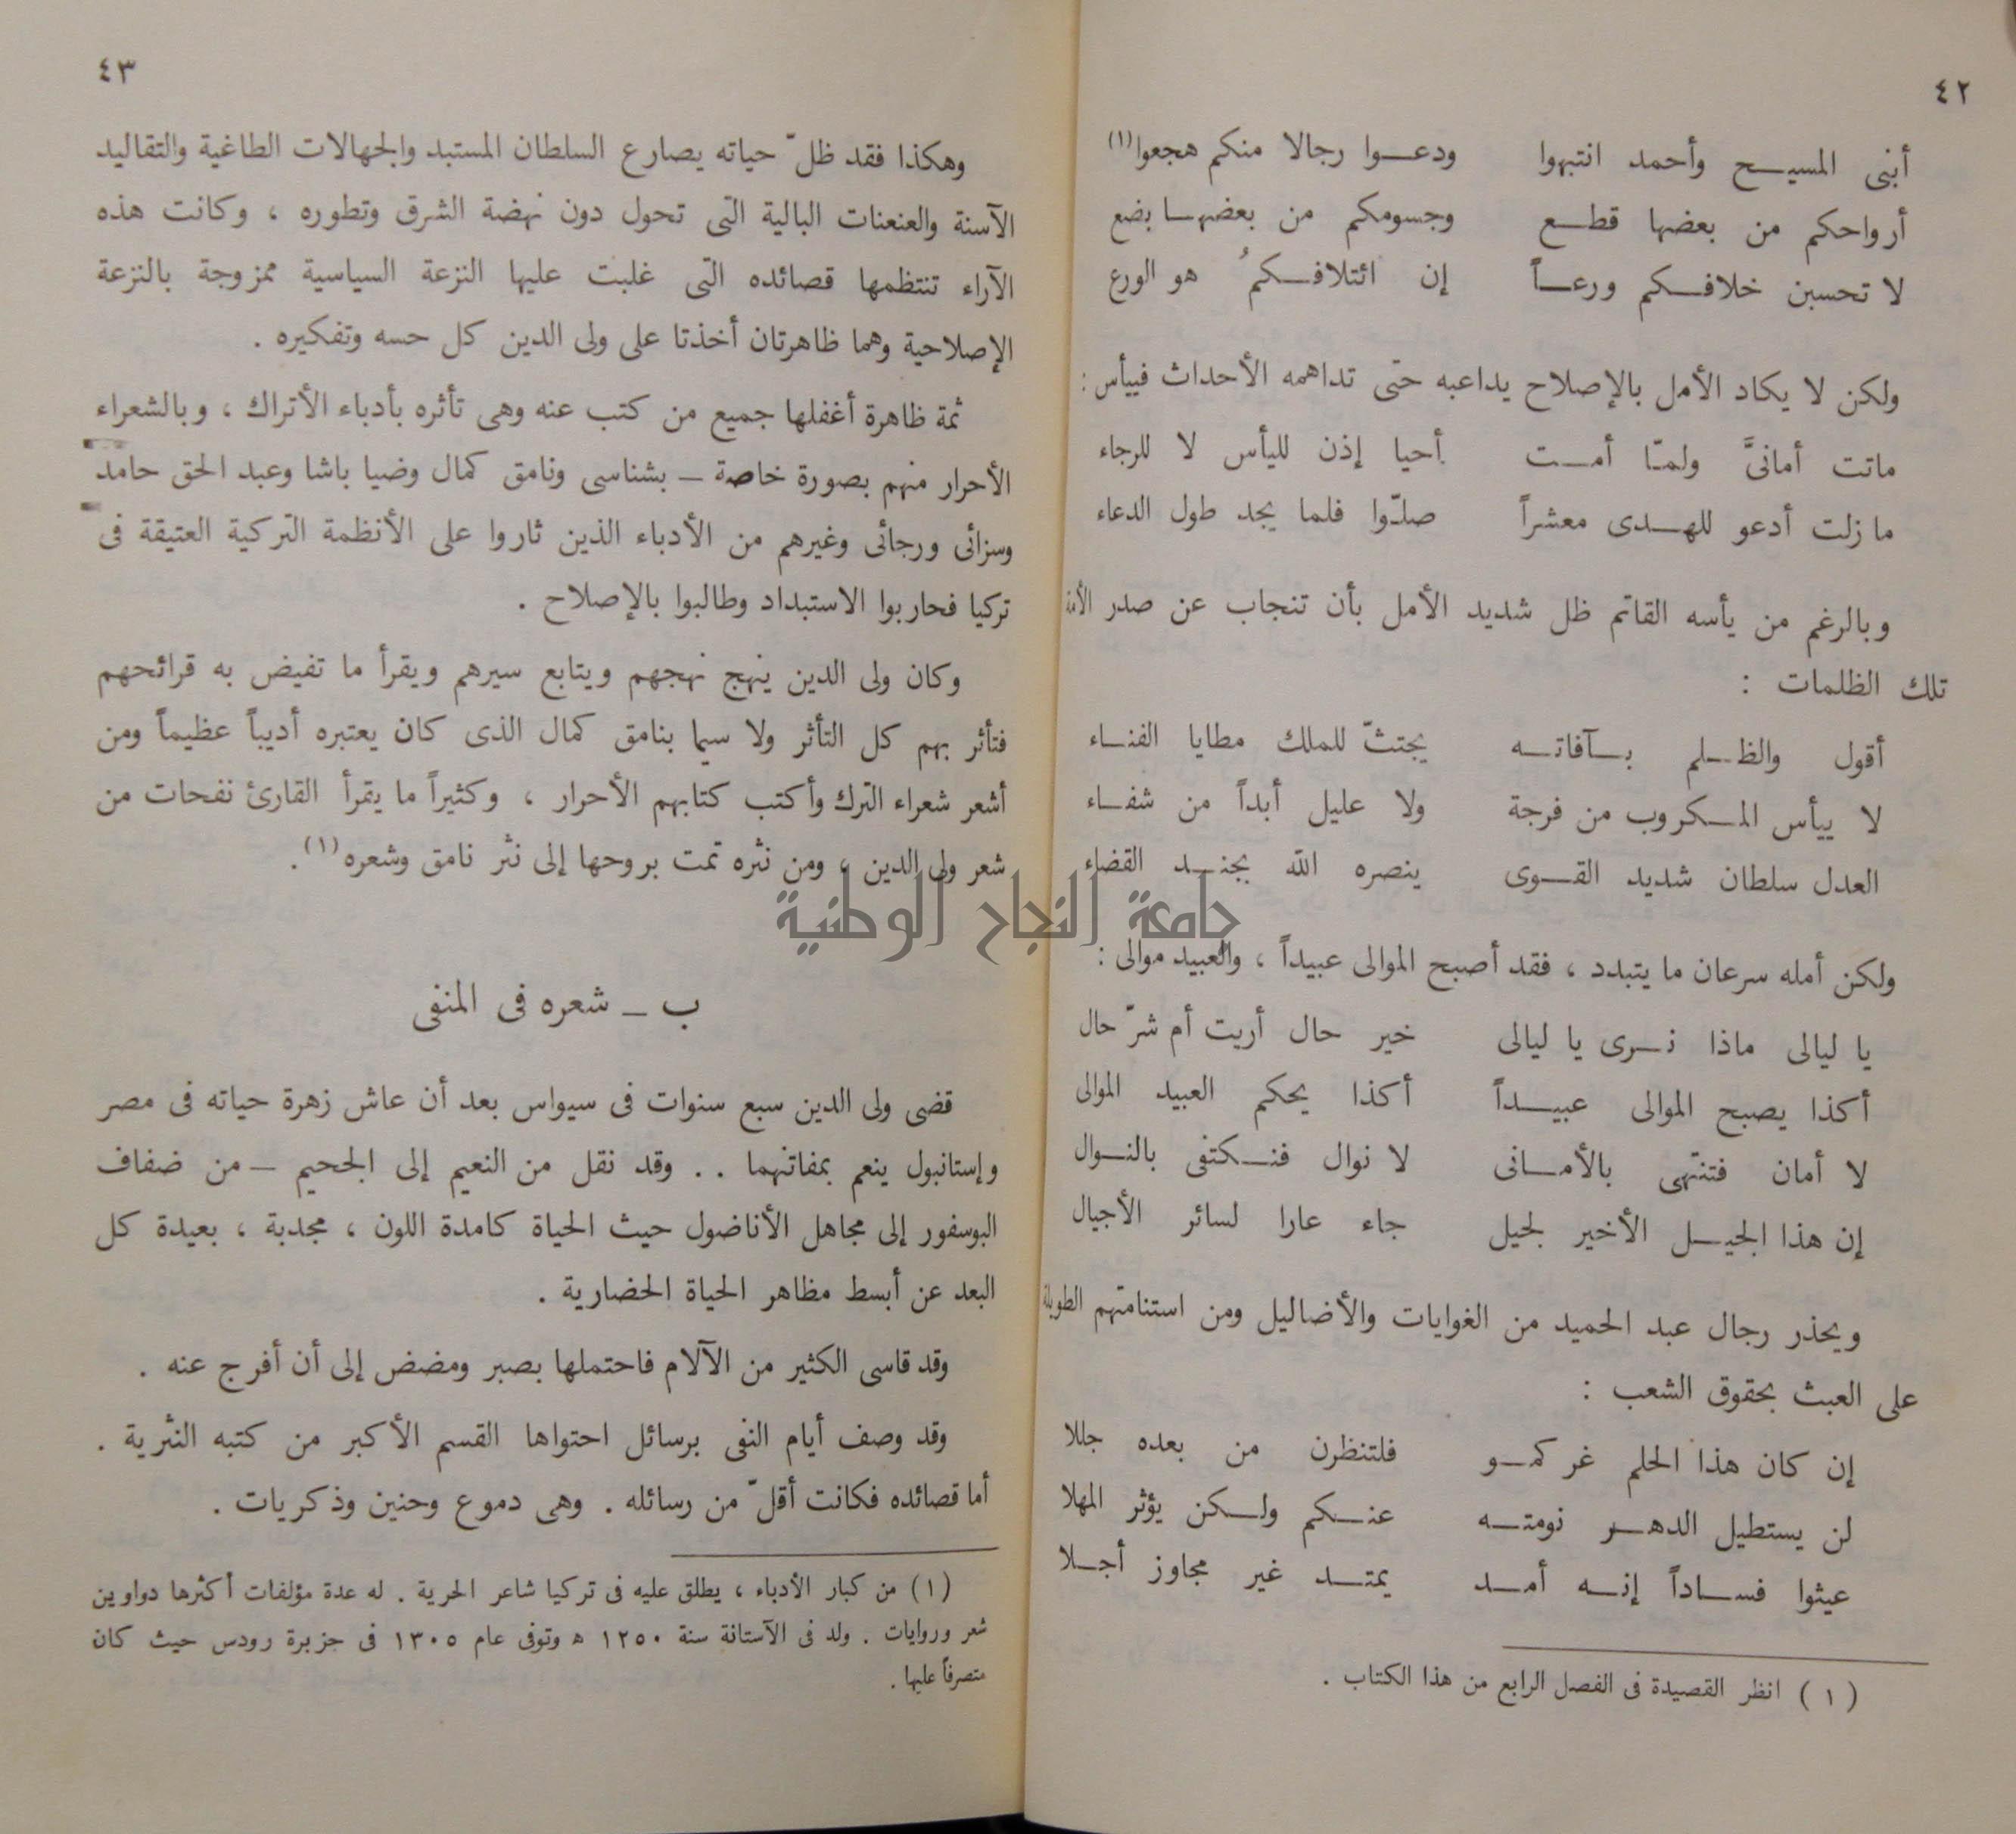 ٤٢
أبنى المسيح وأحمد انتبهوا ودعوا رجالا منكم هجعوا (١)
أرواحكم من بعضها قطع وجسومكم من بعضها بضع
لا تحسبن خلافكم ورعاً إن ائتلافكمُ هو الورع
ولكن لا يكاد الأمل بالإصلاح يداعبه حتى تداهمه الأحداث فييأس :
ماتت أمانىَّ ولمّا أمت أحيا إذن لليأس لا للرجاء
ما زلت أدعو للهدى معشراً صلّوا فلما يجد طول الدعاء
وبالرغم من يأسه القاتم ظل شديد الأمل بأن تنجاب عن صدر الأمة
تلك الظلمات :
أقول والظلم بآفاته يجتثّ للملك مطايا الفناء
لا ييأس المكروب من فرجة ولا عليل أبداً من شفاء
العدل سلطان شديد القوى ينصره الله بجند القضاء
ولكن أمله سرعان ما يتبدد ، فقد أصبح الموالى عبيداً ، والعبيد موالى :
يا ليالى ماذا نرى يا ليالى خير حال أريت أم شرّ حال
أكذا يصبح الموالى عبيداً أكذا يحكم العبيد الموالى
لا أمان فتنتهى بالأمانى لا نوال فنكتفى بالنوال
إن هذا الجيل الأخير لجيل جاء عارا لسائر الأجيال
ويحذر رجال عبد الحميد من الغوايات والأضاليل ومن استنامتهم الطويلة
على العبث بحقوق الشعب :
إن كان هذا الحلم غركمو فلتنظرن من بعده جللا
لن يستطيل الدهر نومته عنكم ولكن يؤثر المهلا
عيثوا فساداً إنه أمد يمتد غير مجاوز أجلا
(١) انظر القصيدة فى الفصل الرابع من هذا الكتاب .
٤٣
وهكذا فقد ظلّ حياته يصارع السلطان المستبد والجهالات الطاغية والتقاليد
الآسنة والعنعنات البالية التى تحول دون نهضة الشرق وتطوره ، وكانت هذه
الآراء تنتظمها قصائده التى غلبت عليها النزعة السياسية ممزوجة بالنزعة
الإصلاحية وهما ظاهرتان أخذتا على ولى الدين كل حسه وتفكيره .
ثمة ظاهرة أغفلها جميع من كتب عنه وهى تأثره بأدباء الأتراك ، وبالشعراء
الأحرار منهم بصورة خاصة – بشناسى ونامق كمال وضيا باشا وعبد الحق حامد
وسزائى ورجائى وغيرهم من الأدباء الذين ثاروا على الأنظمة التركية العتيقة فى
تركيا فحاربوا الاستبداد وطالبوا بالإصلاح .
وكان ولى الدين ينهج نهجهم ويتابع سيرهم ويقرأ ما تفيض به قرائحهم
فتأثر بهم كل التأثر ولا سيما بنامق كمال الذى كان يعتبره أديباً عظيماً ومن
أشعر شعراء الترك وأكتب كتابهم الأحرار ، وكثيراً ما يقرأ القارئ نفحات من
شعر ولى الدين ، ومن نثره تمت بروحها إلى نثر نامق وشعره (١).
جامعة النجاح الوطنية
ب – شعره فى المنفى
قضى ولى الدين سبع سنوات فى سيواس بعد أن عاش زهرة حياته فى مصر
وإستانبول ينعم بمفاتنهما . . وقد نقل من النعيم إلى الجحيم – من ضفاف
البوسفور إلى مجاهل الأناضول حيث الحياة كامدة اللون ، مجدبة ، بعيدة كل
البعد عن أبسط مظاهر الحياة الحضارية .
وقد قاسى الكثير من الآلام فاحتملها بصبر ومضض إلى أن أفرج عنه .
وقد وصف أيام النفى برسائل احتواها القسم الأكبر من كتبه النثرية .
أما قصائده فكانت أقلّ من رسائله . وهى دموع وحنين وذكريات .
(١) من كبار الأدباء ، يطلق عليه فى تركيا شاعر الحرية . له عدة مؤلفات أكثرها دواوين
شعر وروايات . ولد فى الآستانة سنة ١٢٥٠ ه وتوفى عام ١٣٠٥ فى جزيرة رودس حيث كان
متصرفاً عليها .